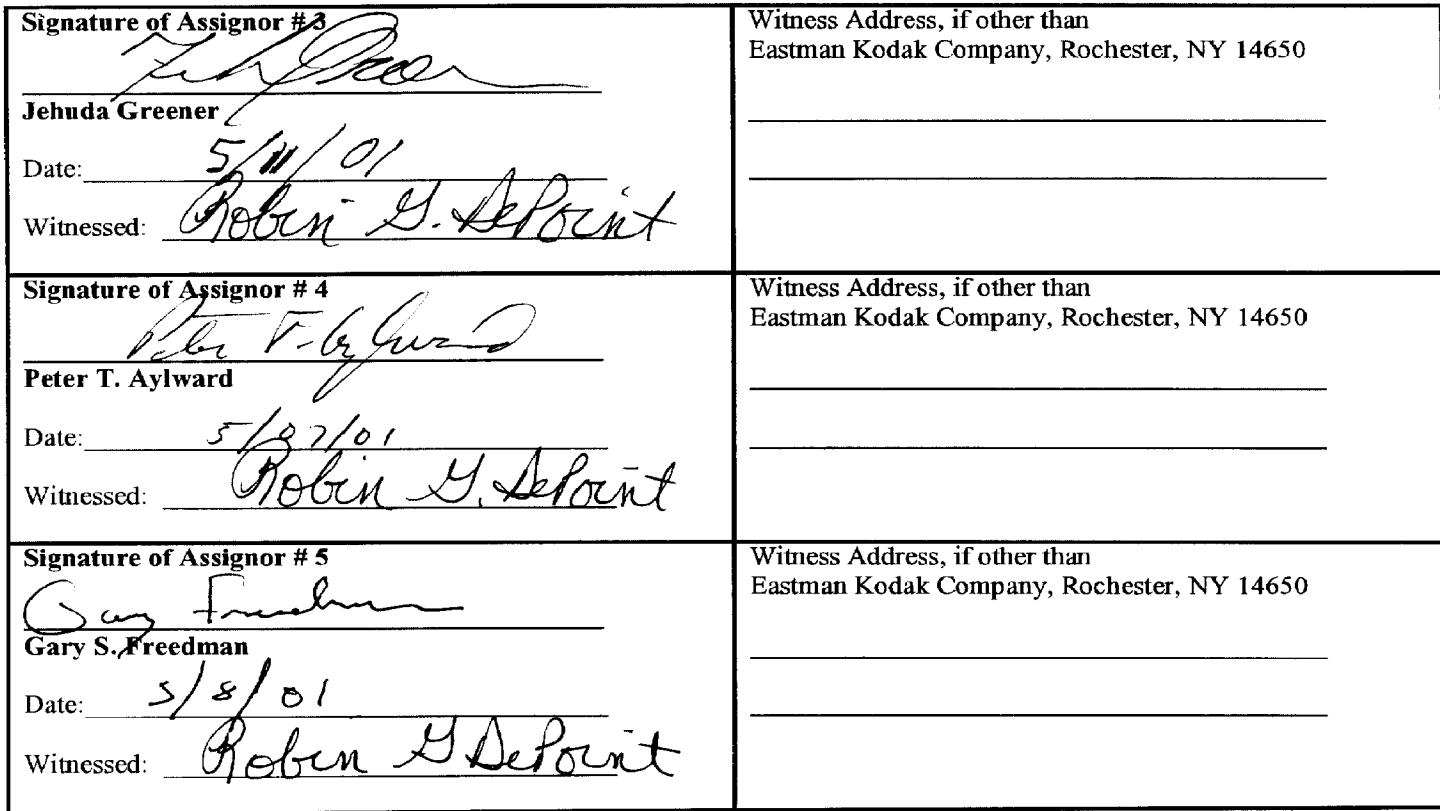 Signature of Assignor # 3
Jehuda Greener
Date: 5/11/01
Witnessed: Robin G. DePoint
Witness Address, if other than
Eastman Kodak Company, Rochester, NY 14650
Signature of Assignor # 4
Peter T. Aylward
Peter T. Aylward
Date: 5/07/01
Witnessed: Robin G. DePoint
Witness Address, if other than
Eastman Kodak Company, Rochester, NY 14650
Signature of Assignor # 5
Gary Freedman
Gary S. Freedman
Date: 5/8/01
Witnessed: Robin G DePoint
Witness Address, if other than
Eastman Kodak Company, Rochester, NY 14650